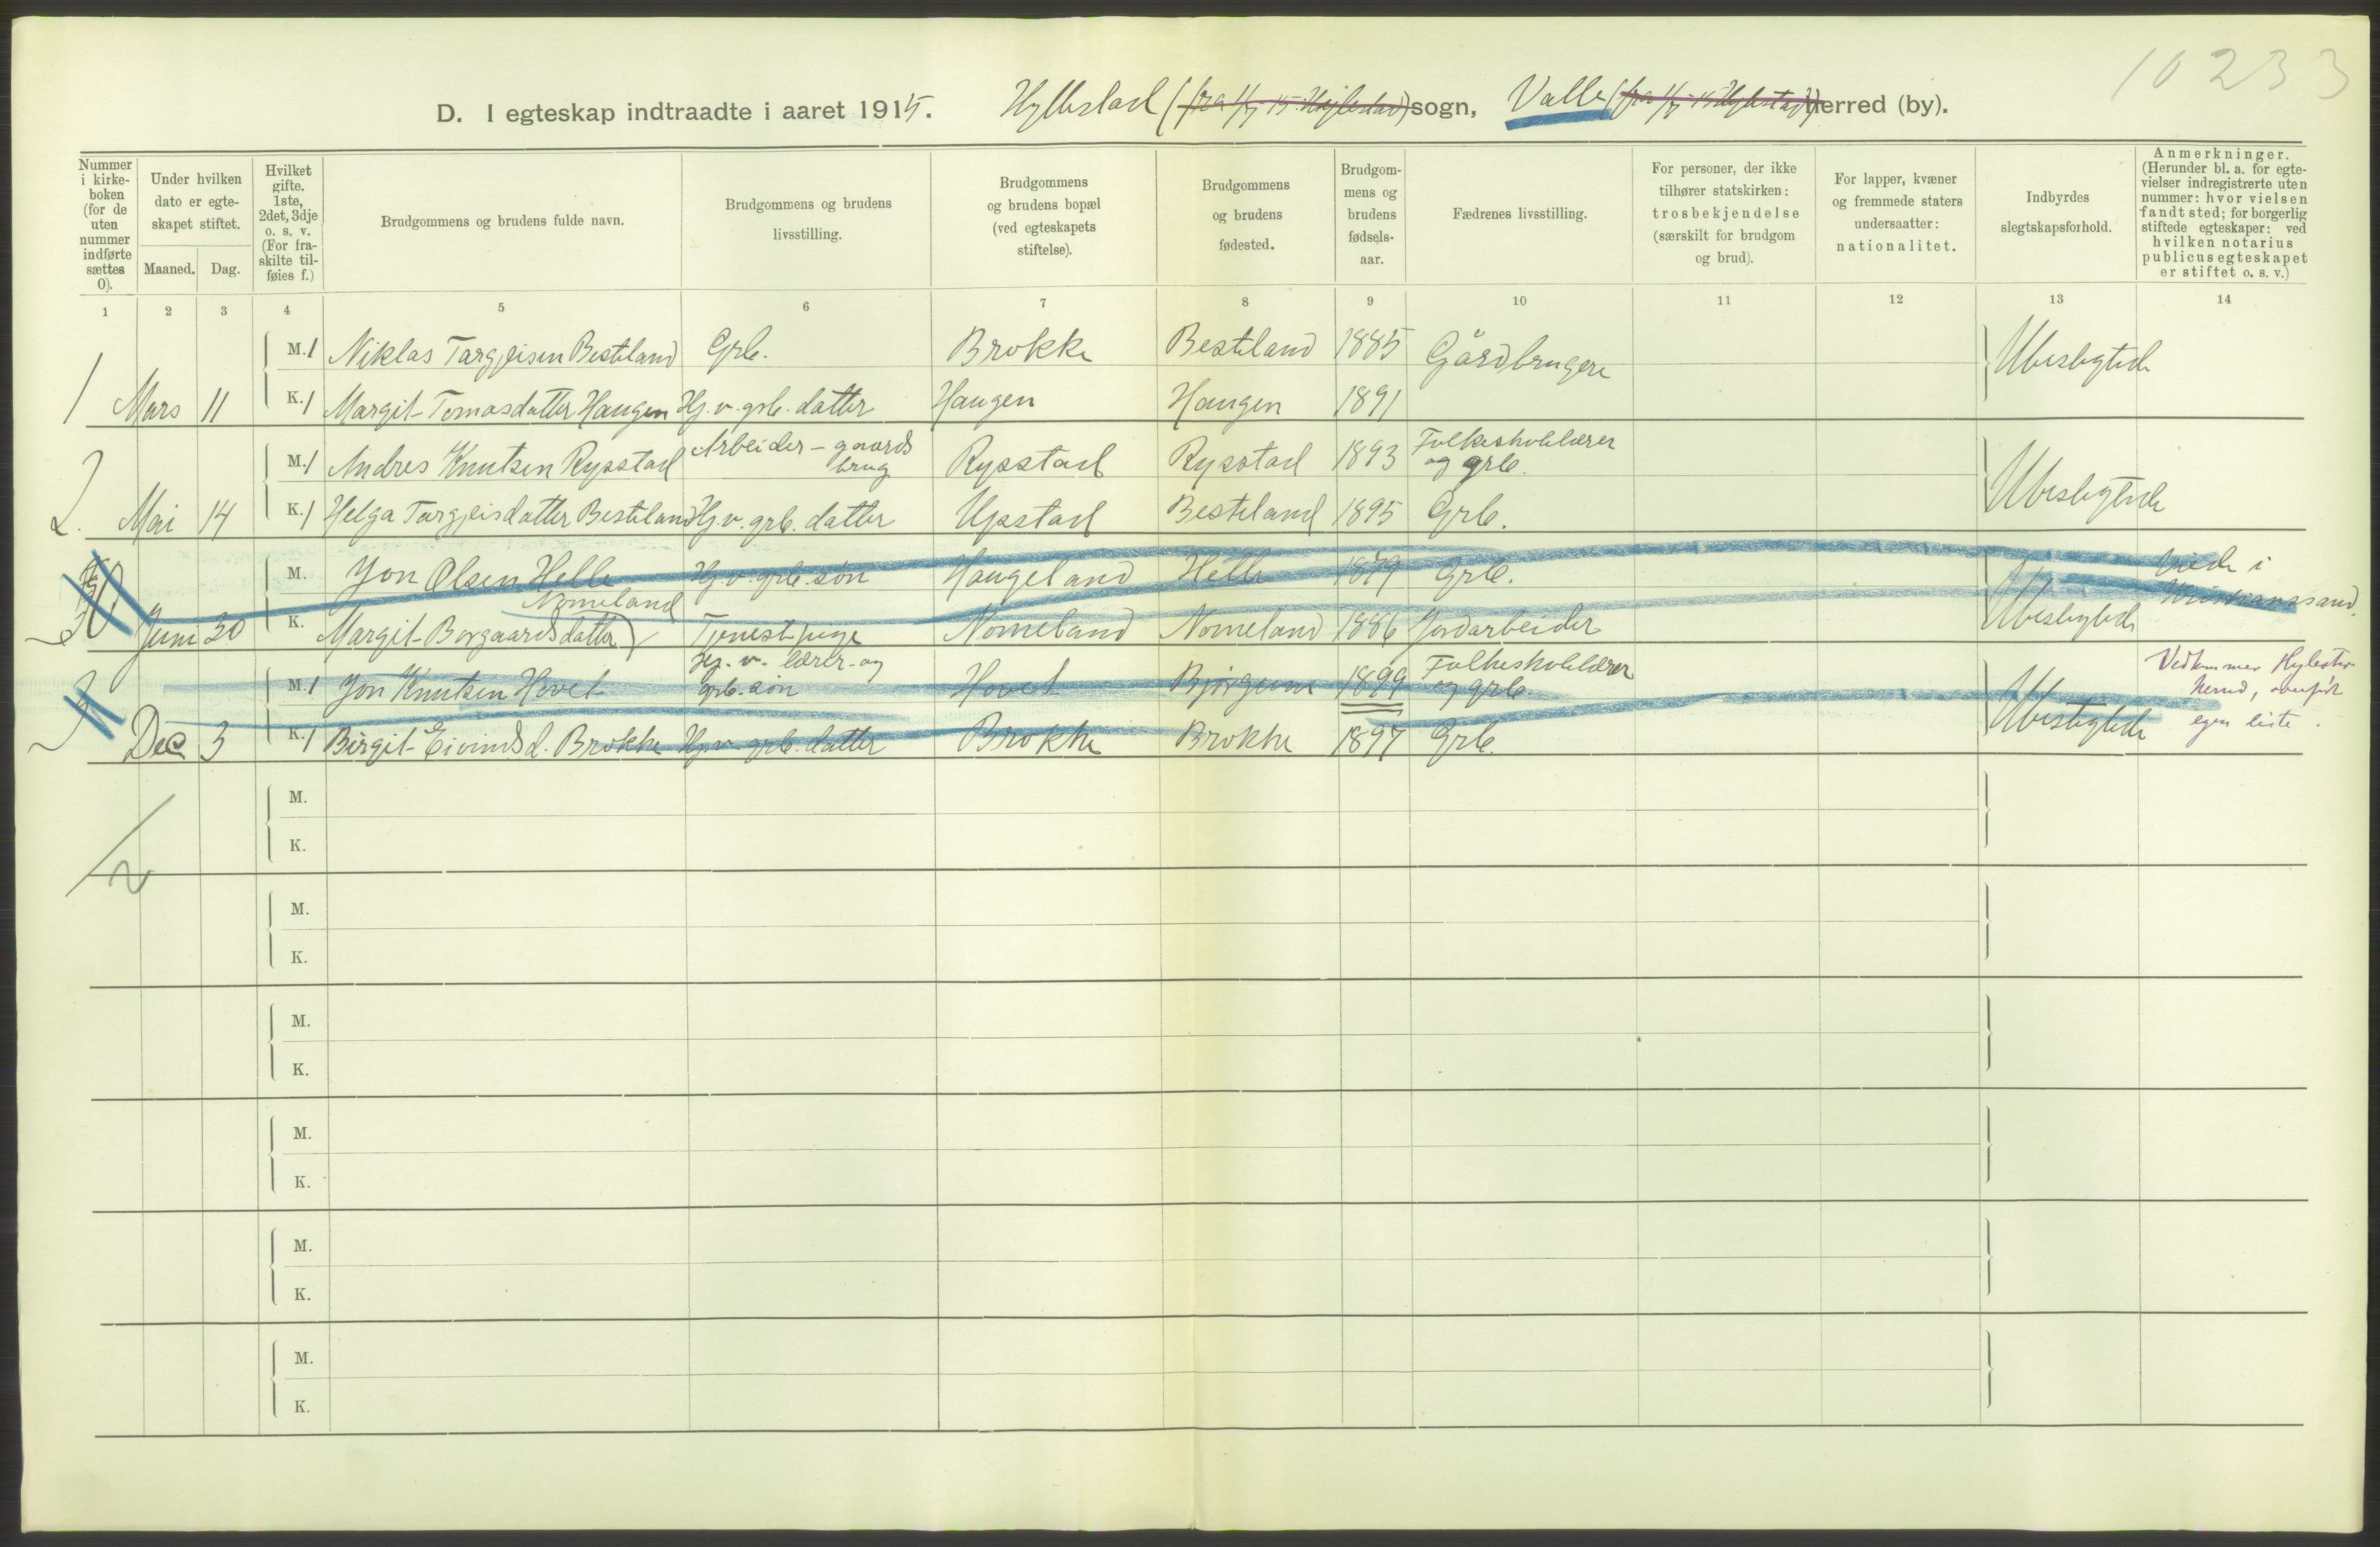 10233
D. I egteskap indtraadte i aaret 1915. Hyllestad (fra 1/7 15 Hylestad) sogn, Valle (fra 1/7 15 Hylestad) herred (by).
Nummer i kirke-boken (for de uten nummer indførte sættes 0).
Under hvilken dato er egte-skapet stiftet.
Maaned. Dag.
Hvilket gifte. 1ste, 2det, 3dje o. s. v. (For fra-skilte til-føies f.)
Brudgommens og brudens fulde navn.
Brudgommens og brudens livsstilling.
Brudgommens og brudens bopæl (ved egteskapets stiftelse).
Brudgommens og brudens fødested.
Brudgom-mens og brudens fødsels-aar.
Fædrenes livsstilling.
For personer, der ikke tilhører statskirken: trosbekjendelse (særskilt for brudgom og brud).
For lapper, kvæner og fremmede staters undersaatter: nationalitet.
Indbyrdes slegtskapsforhold.
Anmerkninger. (Herunder bl. a. for egte-vielser indregistrerte uten nummer: hvor vielsen fandt sted; for borgerlig stiftede egteskaper: ved hvilken notarius publicus egteskapet er stiftet o. s. v.)
1 2 3 4 5 6 7 8 9 10 11 12 13 14
M. 1 Niklas Targjeisen Besteland Grb. Brokke Besteland 1885 Gårdbrugere Ubeslegtede
1 Mars 11 K. 1 Margit Tomasdatter Haugen Hj. v. grb. datter Haugen Haugen 1891
M. 1 Andres Knutsen Rysstad Arbeider - gaards brug Rysstad Rysstad 1893 Folkeskolelærer og grb. Ubeslegtede
2. Mai 14 K. 1 Helga Targjeisdatter Besteland Hj. v. grb. datter Upstad Besteland 1895 Grb.
M. Jon Olsen Helle Hj. v. grb. søn Haugeland Helle 1879 Grb. Ubeslegtede Viede i Kristianssand.
0 Juni 30 K. Margit Borgaardsdatter Nomeland Tjenestpige Nomeland Nomeland 1886 Jordarbeider
M. 1 Jon Knutsen Hovet Hj. v. lærer- og grb. søn Hovet Bjørgum 1899 Folkeskolelærer og grb. Ubeslegtede Vedkommer Hylestad herred, overført egen liste.
3 Dec 3 K. 1 Birgit Eivindsd. Brokke Hj. v. grb. datter Brokke Brokke 1897 Grb.
M.
K.
2
M.
K.
M.
K.
M.
K.
M.
K.
M.
K.